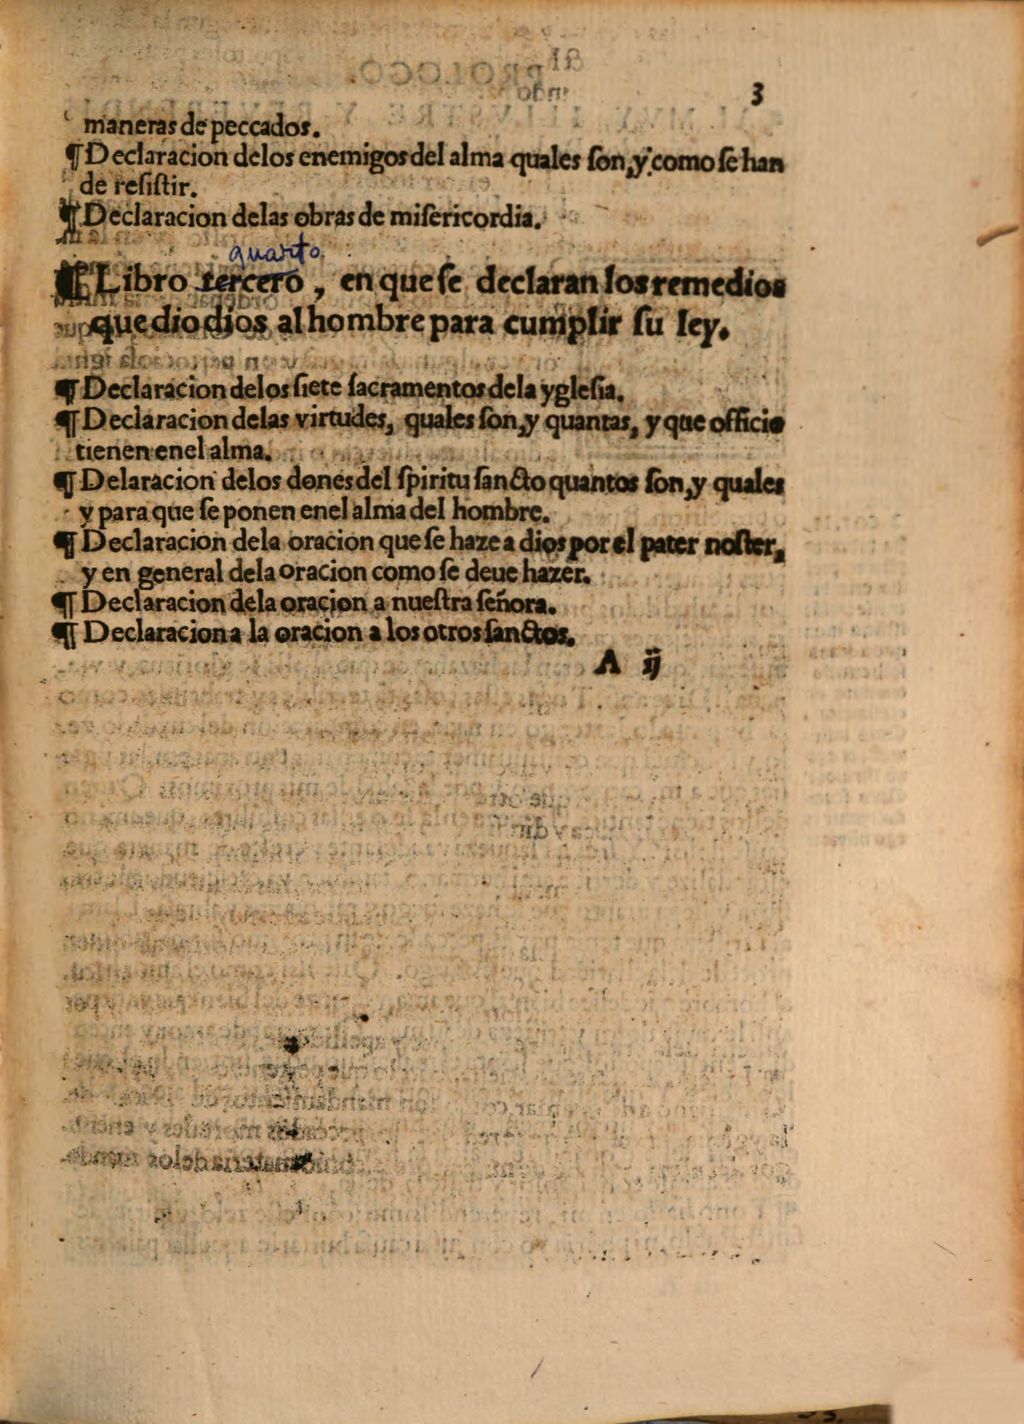 3
maneras de peccados.
¶ Declaracion delos enemigos del alma quales ſon, y como ſe han
de reſiſtir.
¶ Declaracion delas obras de miſericordia.
quarto
¶ Libro tercero, en que ſe declaran los remedios
que dio dios al hombre para cumplir ſu ley.
¶ Declaracion delos ſiete ſacramentos dela ygleſia.
¶ Declaracion delas virtudes, quales ſon, y quantas, y que officio
tienen enel alma.
¶ Delaracion delos dones del ſpiritu ſancto quantos ſon, y quales
y para que ſe ponen enel alma del hombre.
¶ Declaracion dela oracion que ſe haze a dios por el pater noſter,
y en general dela oracion como ſe deue hazer.
¶ Declaracion dela oracion a nueſtra ſeñora.
¶ Declaracion a la oracion a los otros ſanctos.
A ij